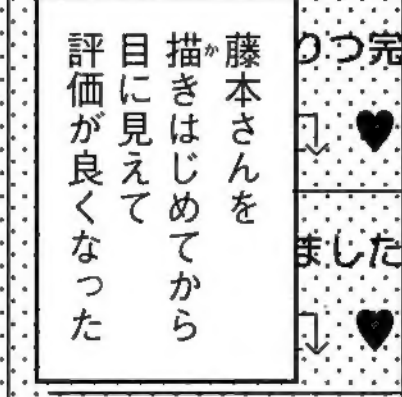 藤本さんを
描きはじめてから
目に見えて
評価が良くなった
りつ完
ました